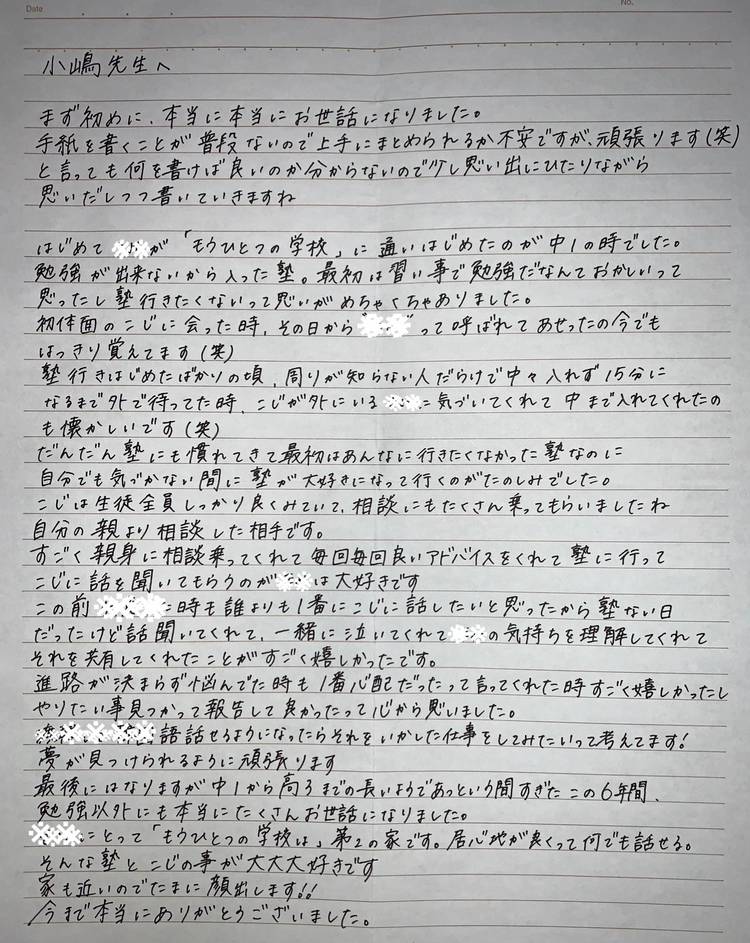 Date
No.
小嶋先生へ
まず初めに、本当に本当にお世話になりました。
手紙を書くことが普段ないので上手にまとめられるか不安ですが、頑張ります(笑)
と言っても何を書けば良いのか分からないので少し思い出にひたりながら
思いだしつつ書いていきますね
はじめて が「もうひとつの学校」に通いはじめたのが中1の時でした。
勉強が出来ないから入った塾。最初は習い事で勉強だなんておかしいって
思ったし塾行きたくないって思いがめちゃくちゃありました。
初体面のこじに会った時、その日から" "って呼ばれてあせったの今でも
はっきり覚えてます(笑)
塾行きはじめたばかりの頃、周りが知らない人だらけで中々入れず15分に
なるまで外で待ってた時、こじが外にいる に気づいてくれて中まで入れてくれたの
も懐かしいです(笑)
だんだん塾にも慣れてきて最初はあんなに行きたくなかった塾なのに
自分でも気づかない間に塾が大好きになって行くのがたのしみでした。
こじは生徒全員しっかり良くみていて、相談にもたくさん乗ってもらいましたね
自分の親より相談した相手です。
すごく親身に相談乗ってくれて毎回毎回良いアドバイスをくれて塾に行って
こじに話を聞いてもらうのが は大好きです
この前 に時も誰よりも1番にこじに話したいと思ったから塾ない日
だったけど話聞いてくれて、一緒に泣いてくれて の気持ちを理解してくれて
それを共有してくれたことがすごく嬉しかったです。
進路が決まらず悩んでた時も1番心配だったって言ってくれた時すごく嬉しかったし
やりたい事見つかって報告して良かったって心から思いました。
語話せるようになったらそれをいかした仕事をしてみたいって考えてます!
夢が見つけられるように頑張ります
最後にはなりますが中1から高3までの長いようであっという間すぎたこの6年間、
勉強以外にも本当にたくさんお世話になりました。
にとって「もうひとつの学校は」第2の家です。居心地が良くって何でも話せる。
そんな塾とこじの事が大大大好きです
家も近いのでたまに顔出します!!
今まで本当にありがとうございました。